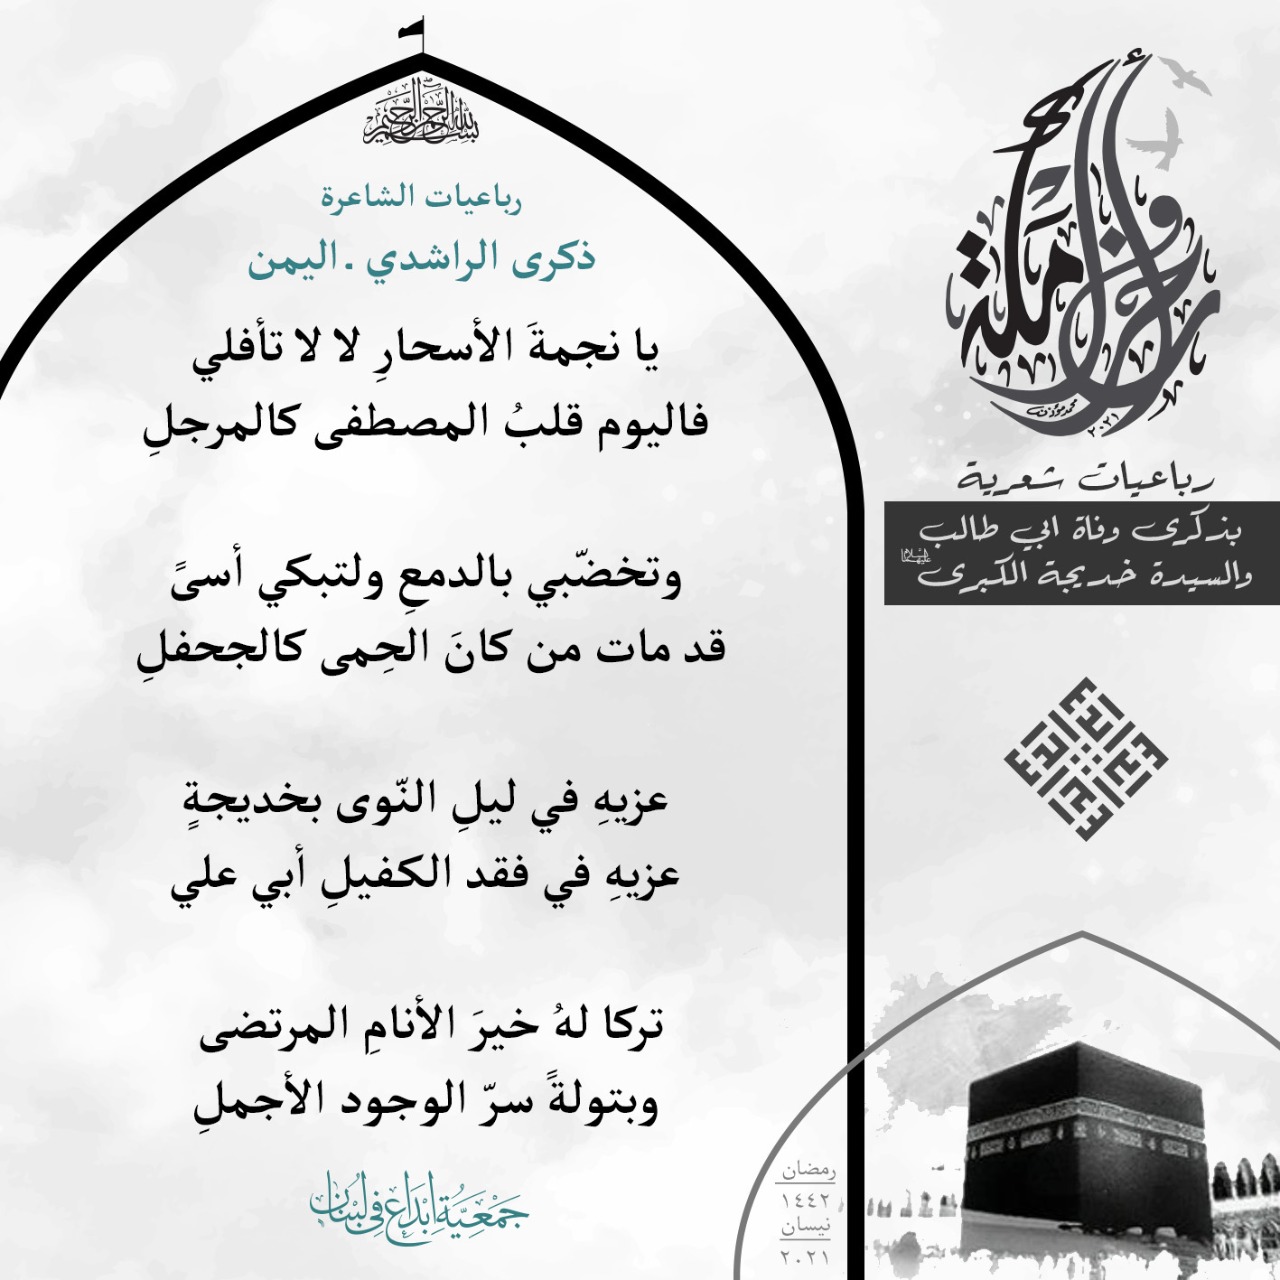 بسم الله الرحمن الرحيم
رباعيات الشاعرة
ذكرى الراشدي ـ اليمن
يا نجمةَ الأسحارِ لا لا تأفلي
فاليوم قلبُ المصطفى كالمرجلِ
وتخضّبي بالدمعِ ولتبكي أسىً
قد مات من كانَ الحِمى كالجحفلِ
عزيهِ في ليلِ النّوى بخديجةٍ
عزيهِ في فقد الكفيلِ أبي علي
تركا لهُ خيرَ الأنامِ المرتضى
وبتولةً سرّ الوجود الأجملِ
جَمْعِيَّةُ إبْدَاع فِي لُبْنَان
محمد مؤذن
٢٠٢١
رباعيات شعرية
بذكرى وفاة ابي طالب
والسيدة خديجة الكبرى عليهما السلام
رمضان
١٤٤٢
نيسان
٢٠٢١